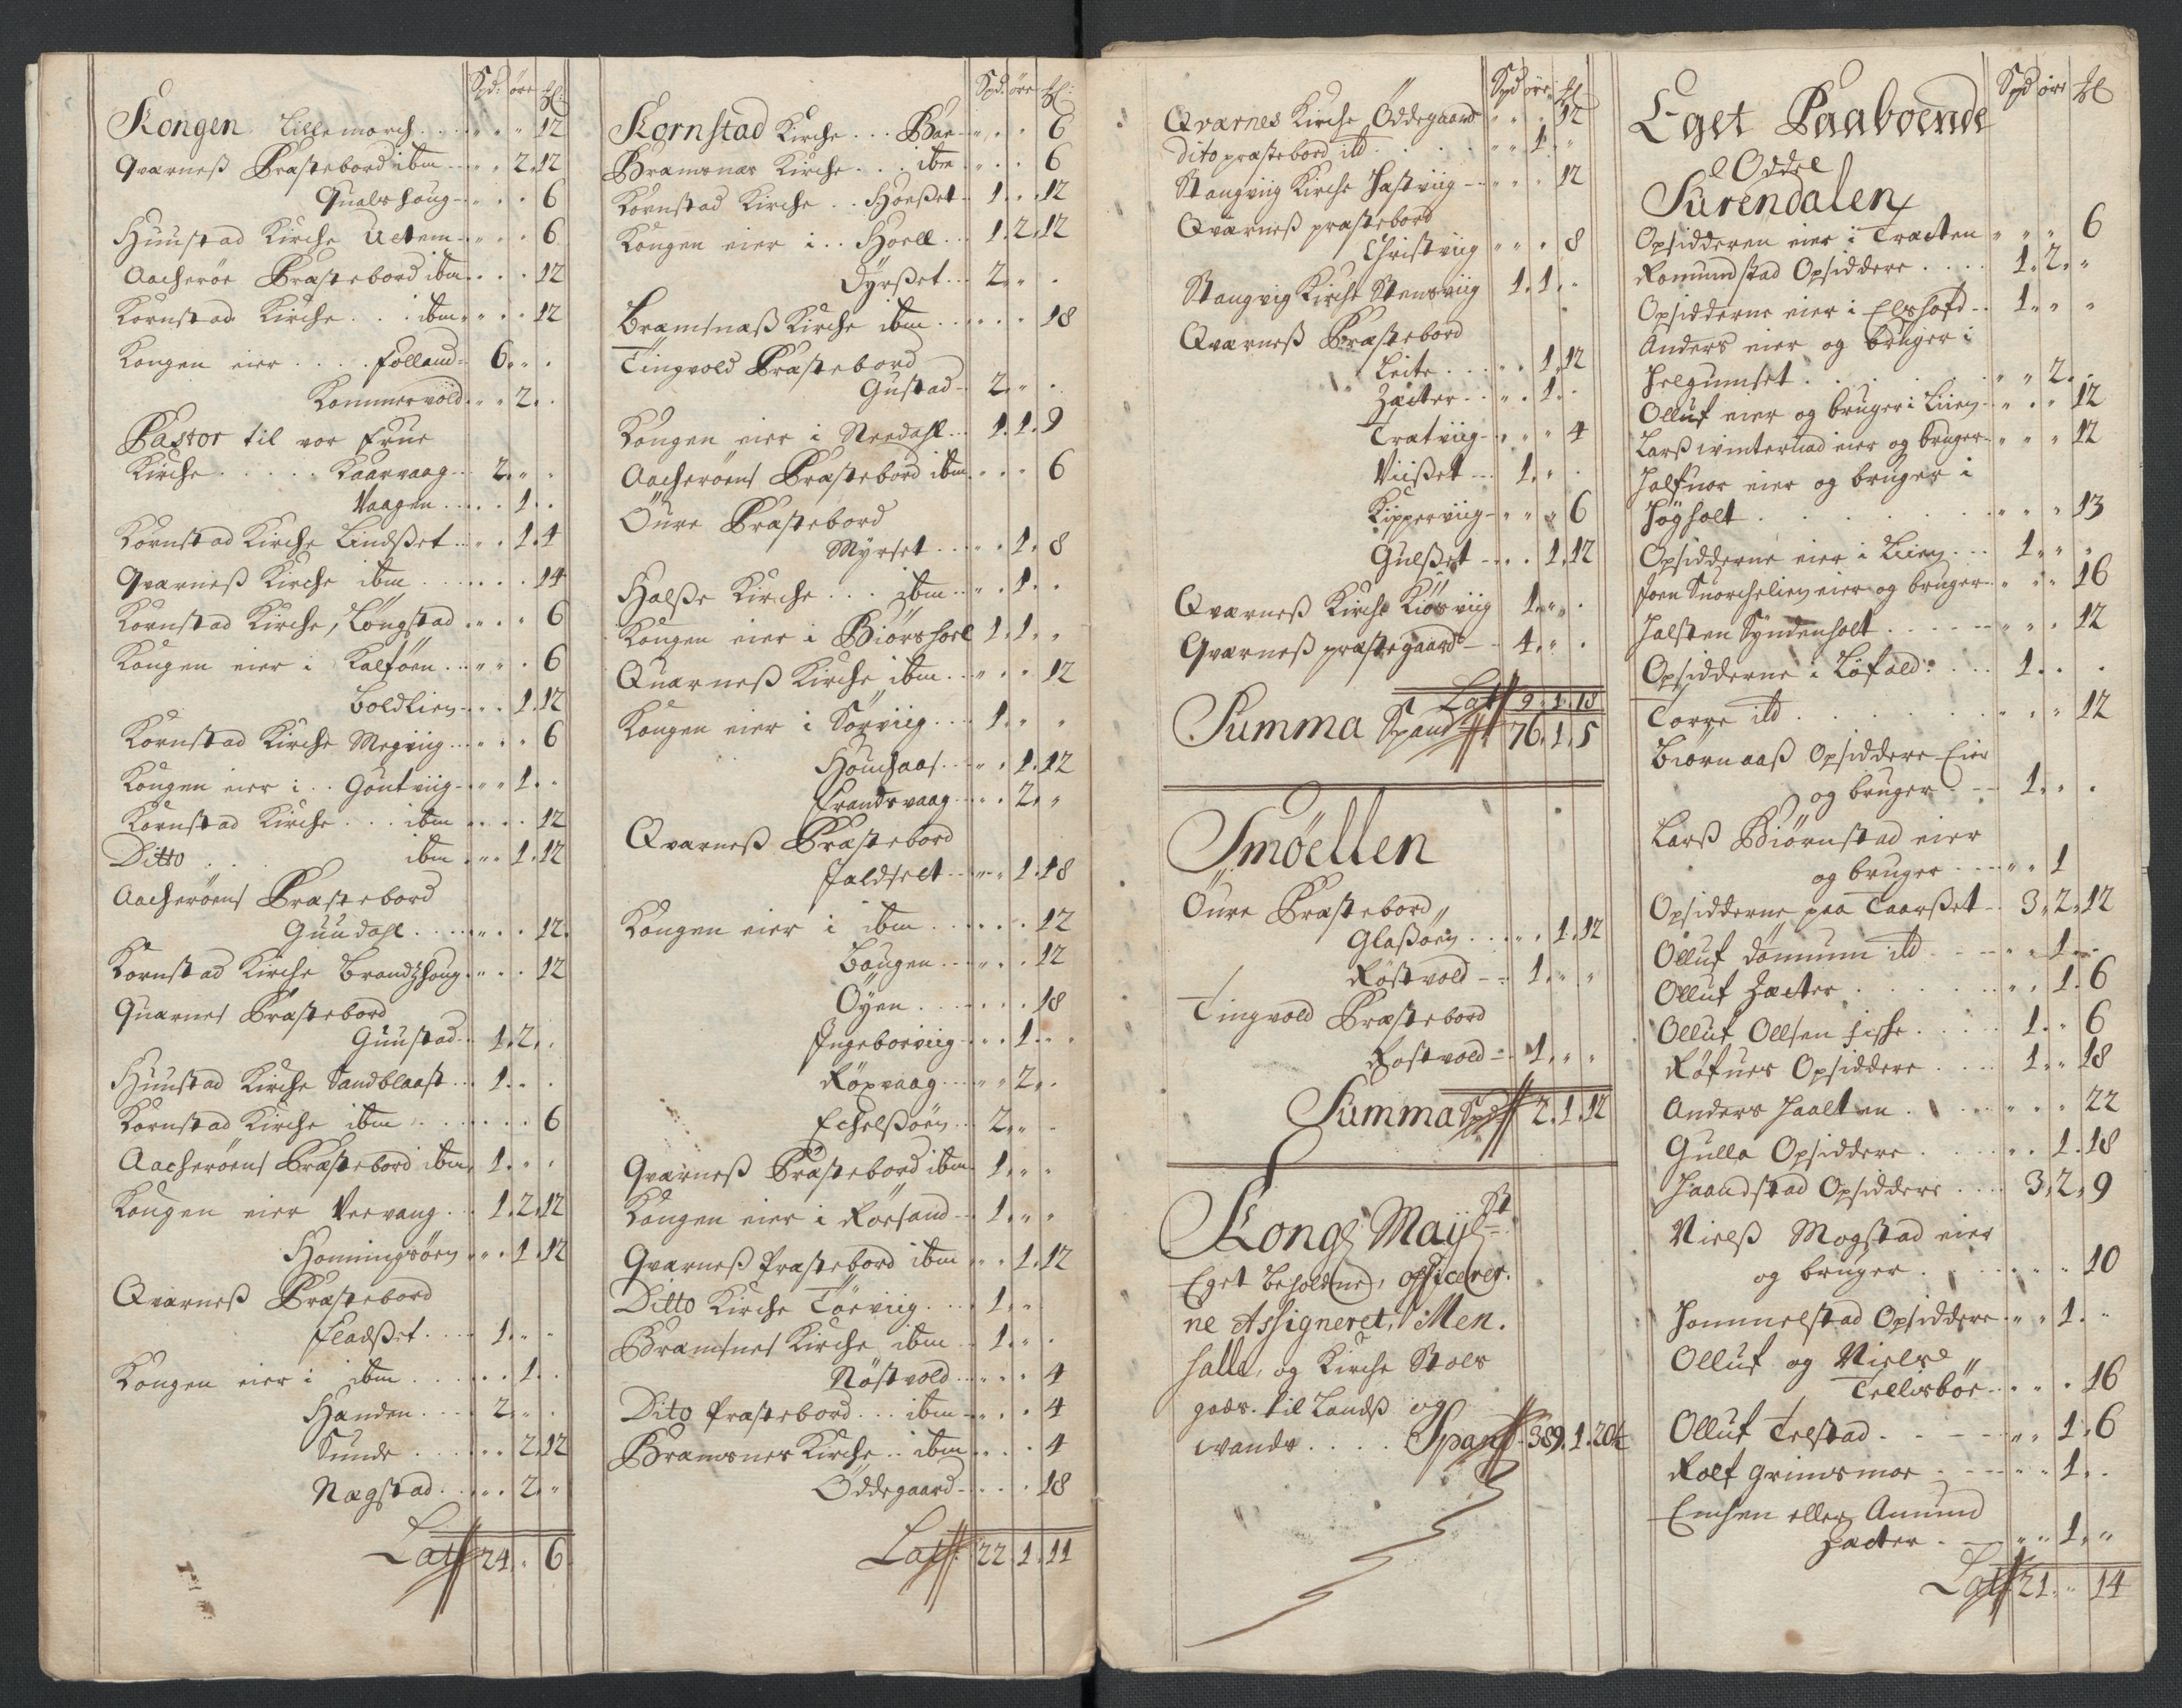 Spd: öre ℔:
Kongen Lillemarch . . . " " " 12
Qvarneß Præstebord ibm . . 2. 12
Qualshaug - . . 6
Huustad Kirche Uctem - . . 6
Aacherøe Præstebord ibm . . . 12
Kornstad Kirche . . ibm . . . 12
Kongen eier . . . Folland - 6 . .
Kammervold . . 2 .
Pastor til vor Frue
Kirche . . . . Kaarvaag - 2 . .
Vaagen . . . . 1 . .
Kornstad Kirche Lindßet . . . 1. 4
Qvarneß Kirche ibm . . . . . 14
Kornstad Kirche, Longstad . . . 6
Kongen eier i Kalføen . . . . 6
Boldlien . . . 1. 12
Kornstad Kirche Megviig . . . 6
Kongen eier i . . Gøntviig - . . 1 . .
Kornstad Kirche . . . ibm . . . 12
Ditto . . . ibm . . . 1. 12
Aacherøens Præstebord
Guudahl . . . . . 12.
Kornstad Kirche Brandtzhoug . . . 12
Quarnes Præstebord
Guustad - 1. 2. .
Huustad Kirche Sandblaast . . 1. . .
Kornstad Kirche ibm . . . . . 6
Aacherøens Præstebord ibm 1. . .
Kongen eier Vervang . . 1. 2. 12
Honningsøen . . . 1. 12
Qvarneß Præstebord
Fladßet . . . 1. . .
Kongen eier i ibm . . . . . 1. .
Handen . . . . 2. . .
Sunde . . . . . 2. 12
Nægstad . . . . 2. .
Lat// 24. . 6

Spd. öre ℔:
Kornstad Kirche . . . Bøe - . . 6
Bramsnæs Kirche . . . ibm . . . 6
Kornstad Kirche . . Hoeßet - 1. . . 12
Kongen eier i . . Hoell . . 1. 2. 12
Dyrßet . . . 2. . .
Bramsnæß Kirche ibm . . . . . 18
Tingvold Præstebord
Gustad - 2. . .
Kongen eier i Neerdahl . . 1. 1. 9
Aacherøens Præstebord ibm . . . 6
Öure Præstebord
Myrset . . . . 1. 8
Halße Kirche . . . ibm . . . 1. .
Kongen eier i Biørshoel 1. 1. .
Quarneß Kirche ibm . . . . 12
Kongen eier i Sørviig . . . . 1. . .
Houchaas . . . . 1. 12
Frandsvaag . . . 2. .
Qvarneß Præstebord
Jaldselt . . . . 1. 18
Kongen eier i ibm . . . . . 12
Baugen . . . . . 12
Öyen . . . . . . 18
Ingeborviig - . . . 1. . .
Røxvaag . . . . 2. .
Echelßøen . . 2. . .
Qvarneß Præstebord ibm 1. . .
Kongen eier i Roesand - 1. . .
Qvarneß Præstebord ibm . . . 1. 12
Ditto Kirche Tøeviig . . . 1. .
Bramsnes Kirche ibm . . 1. . .
Nøstvold . . . . . 4
Dito Præstebord . . . ibm - . . . 4
Bramsnes Kirche . . ibm . . . . 4
Öddegaard - . . . 18
Lat// 22. 1. 11

Spd öre ℔
Qvarnes Kirche Öddegaard . . . 12
dito præstebord itd . . . . . 1. .
Stangviig Kirche Hastviig - . . . 12
Qvarneß præstebord
Christviig . . . 8
Stangvig Kirche Stensviig 1. 1. .
Qvarneß Præstebord
Leite . . . . . 1. 12
Zæter . . . . 1. .
Trætviig . . . . 4
Viißet . . . 1. . .
Kipperviig - . . . 6
Gulßet - . . 1. 12
Qvarneß Kirche Kiørviig 1. . .
Qvarneß præstegaard - . 4. . .
Lat// 9. 1. 18
Summa Spand// 76. 1. 5
Smøellen
Öure Præstebord
Glaßøen . . . . . 1. 12
Røstvold - . 1. . .
Tingvold Præstebord
Rostvold - . 1. . .
Summa Spd// 2. 1. 12
Kongl Maÿtt
Eget beholdne, officerer.
ne Assigneret, Men.
salle, og Kirche Stoels
gods. til Landß og
wands . . . . Spand// 389. 1. 20½

Spd öre ℔
Eget Paaboende
Oddel
Surendalen
Opsidderen eier i Tracten . . . 6
Romundstad Opsiddere . . . . 1. 2. .
Opsidderne eier i Elshofd . . 1. . .
Anders eier og bruger i
Helgumset . . . . . . 2. .
Olluf eier og bruger i Liien . . . 12
Larß winterlad eier og bruger . . . 12
Halfuor eier og bruger i
Høyholt . . . . . . . . . 13
Opsidderne eier i Liien . . . 1. . .
Joen Snorchelien eier og bruger . . . 16
Halsten Syndenholt . . . . . . . 12
Opsidderne i Løfald: . . . . 1. . .
Torre itd . . . . . . . . . . 12
Biørnaaß Opsiddere Eier
og bruger . . - 1. . .
Larß Biørnstad eier
og bruger . . . . . 1
Opsidderne paa Taarßet . . 3. 2. 12
Olluf Dønnum itd - . . . . 1. .
Olluf Zæter . . . . . . . 1. 6
Olluf Ollsen Fische . . . . . 1. . 6
Røfues Opsiddere . . . . 1. . 18
Anders Haalten . . . . . . . . 22
Gulla Opsiddere . . . . . . 1. 18
Haandstad Opsiddere . . . 3. 2. 9
Nielß Mogstad eier
og bruger . . . . . . . 10
Hommelstad Opsiddere . . . 1. .
Olluf og Nielse
Tellisbøe . . . . . 16
Olluf Trestad . - - - . . 1. 6
Rolf Grimsmoe . - - - . . 1. .
Emhen eller Amund
Zæter . - . . . 1. .
Lat// 21. . 14